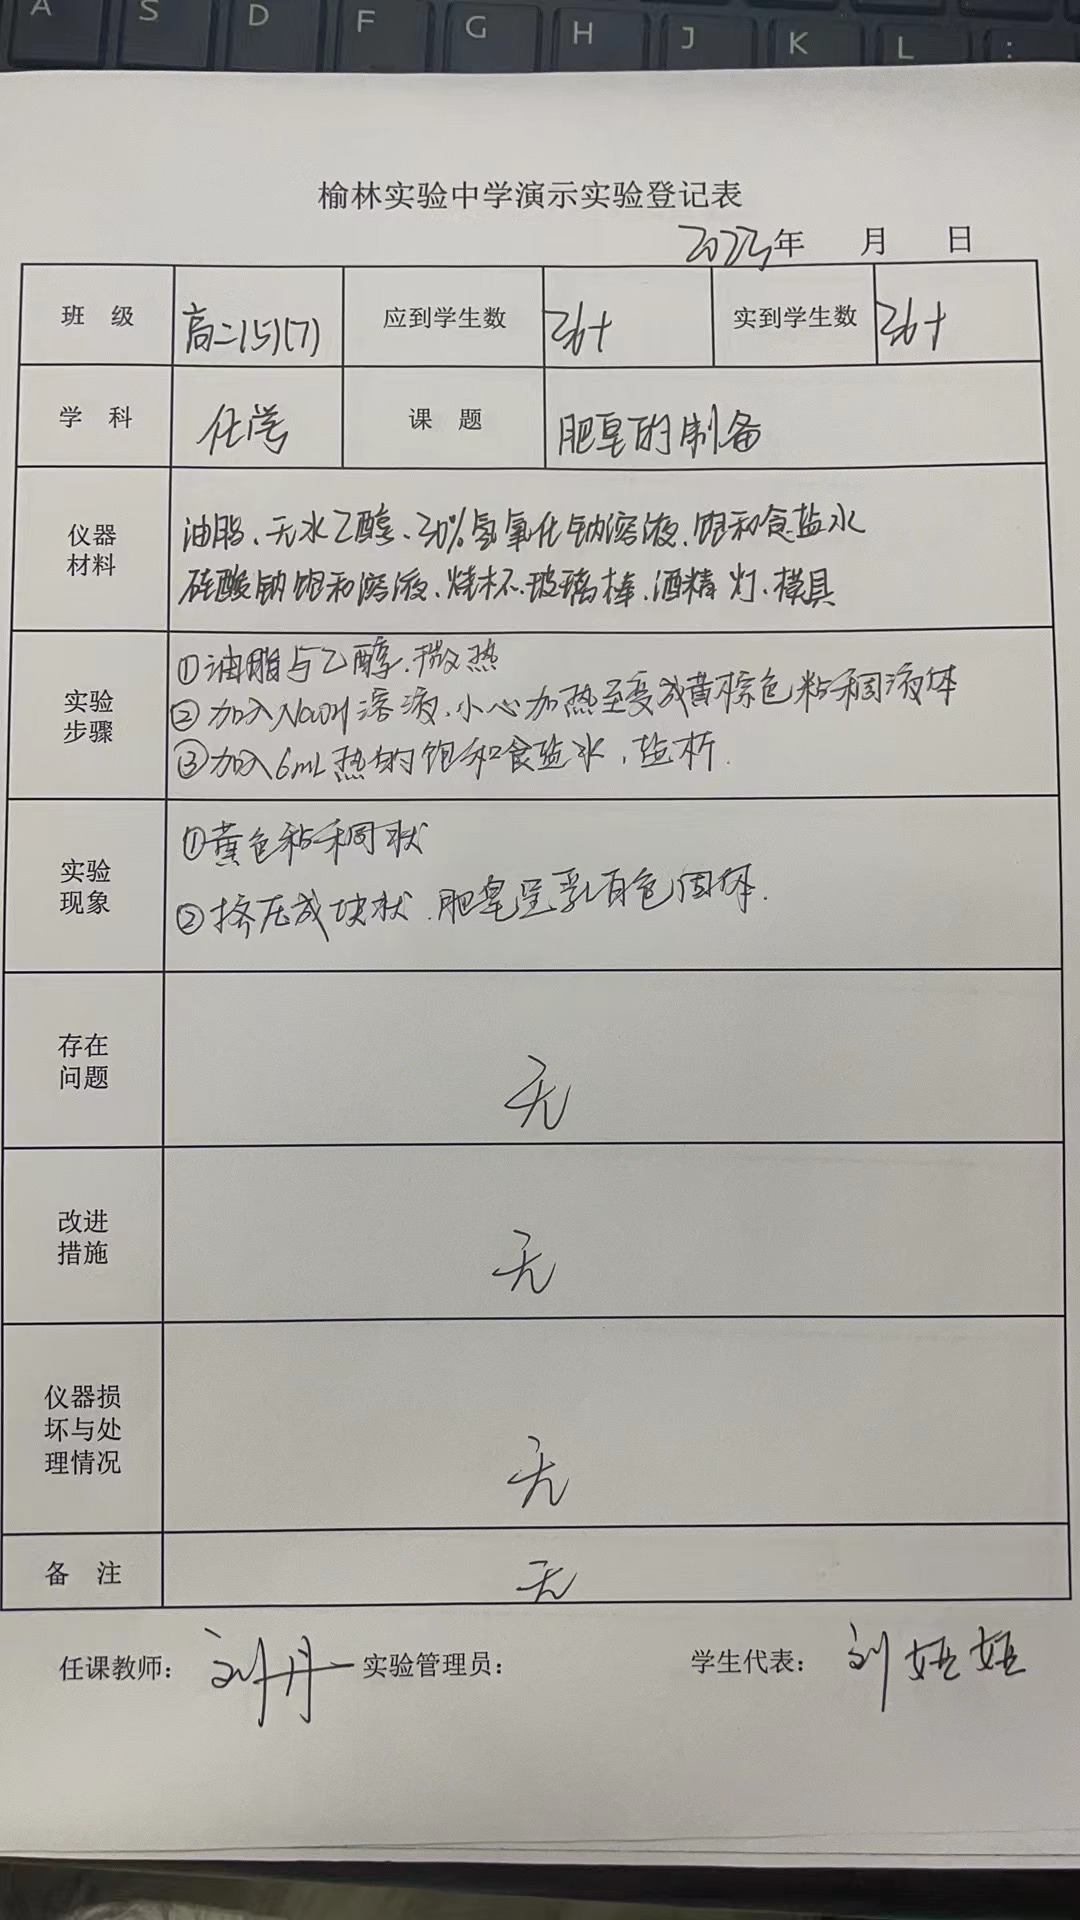 A S D F G H J K L :
榆林实验中学演示实验登记表
2023年 月 日
班 级 高二(5)(7) 应到学生数 36+ 实到学生数 36+
学 科 化学 课 题 肥皂的制备
仪器材料 油脂、无水乙醇、30%氢氧化钠溶液、饱和食盐水
硅酸钠饱和溶液、烧杯、玻璃棒、酒精灯、模具
实验步骤 ①油脂与乙醇、微热
②加入NaOH溶液、小心加热至变成黄棕色粘稠液体
③加入6mL热的饱和食盐水,盐析.
实验现象 ①黄色粘稠状
②挤压成块状.肥皂呈乳白色固体.
存在问题 无
改进措施 无
仪器损坏与处理情况 无
备 注 无
任课教师: 刘丹 实验管理员: 学生代表: 刘妞妞